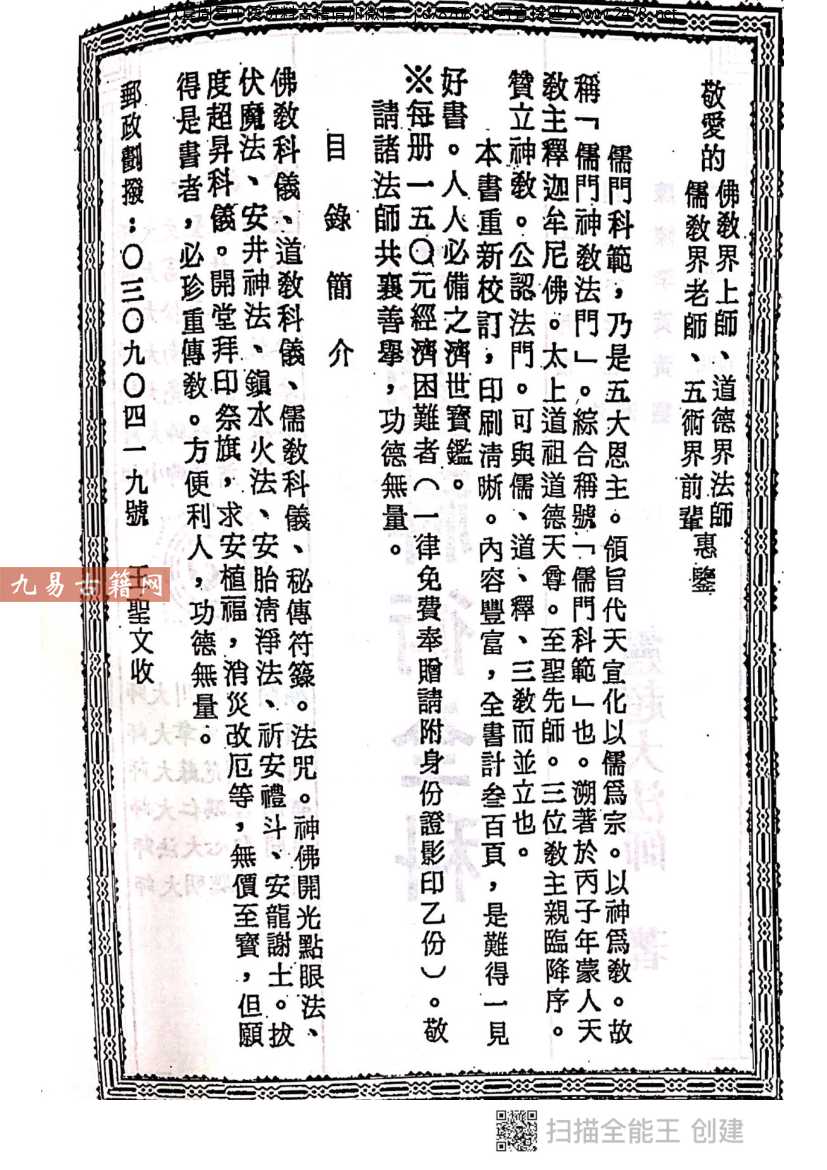 敬愛的
佛教界上師、道德界法師
儒教界老師、五術界前輩
惠鑒
儒門科範，乃是五大恩主。領旨代天宣化以儒爲宗。以神爲教。故
稱「儒門神教法門」。綜合稱號「儒門科範」也。溯著於丙子年蒙人天
教主釋迦牟尼佛。太上道祖道德天尊。至聖先師。三位教主親臨降序。
贊立神教。公認法門。可與儒、道、釋、三教而並立也。
本書重新校訂，印刷清晰。內容豐富，全書計叁百頁，是難得一見
好書。人人必備之濟世寶鑑。
※每册一五〇元經濟困難者（一律免費奉贈請附身份證影印乙份）。敬
請諸法師共襄善舉，功德無量。
目錄簡介
佛教科儀、道教科儀、儒教科儀、秘傳符籙。法咒。神佛開光點眼法、
伏魔法、安井神法、鎮水火法、安胎清淨法、祈安禮斗、安龍謝土。拔
度超昇科儀。開堂拜印祭旗，求安植福，消災改厄等，無價至寶，但願
得是書者，必珍重傳教。方便利人，功德無量。
郵政劃撥：〇三〇九〇四一九號　王聖文收
九易古籍网
扫描全能王 创建